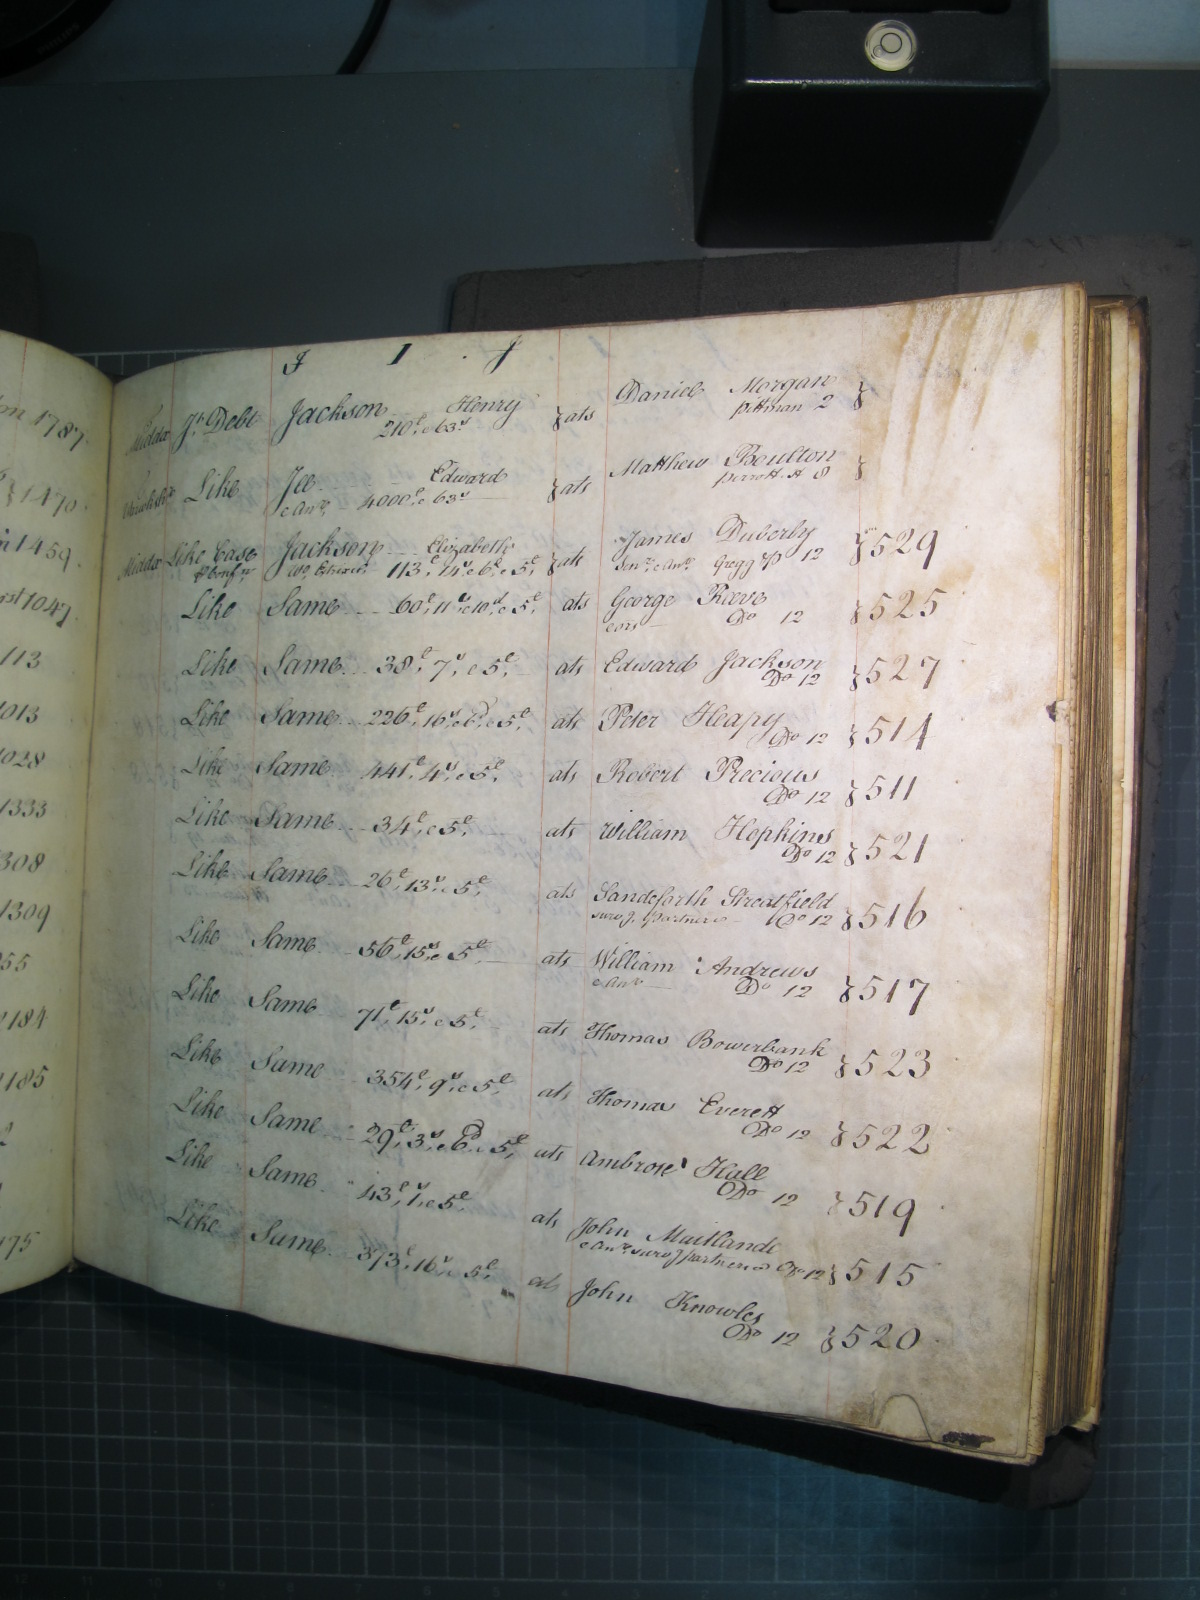 J I J
Middx Jt. Debt Jackson Henry } ats Daniel Morgan }
210£, & 63s pittman 2
Like Jee Edward } ats Matthew Boulton }
& anr. 4000£, & 63s perrott. A 8
Middx Like Case Jackson Elizabeth } ats James Duberly } 529
113£, 14s, & 6d, & 5£, Senr. & anr. Gregg & p 12
Like Same 60£, 11s, & 10d, & 5£, ats George Reeve } 525
& ors Do 12
Like Same 38£, 7s, & 5£, ats Edward Jackson } 527
Do 12
Like Same 226£, 16s, & 6d, & 5£, ats Peter Heapy } 514
Do 12
Like Same 441£, 4s, & 5£, ats Robert Precious } 511
Do 12
Like Same 34£, & 5£, ats William Hopkins } 521
Do 12
Like Same 26£, 13s, & 5£, ats Sandeforth Streatfield } 516
survg. partners Do 12
Like Same 56£, 15s, & 5£, ats William Andrews } 517
& anr Do 12
Like Same 71£, 15s, & 5£, ats Thomas Bowerbank } 523
Do 12
Like Same 354£, 9s, & 5£, ats Thomas Everett } 522
Do 12
Like Same 29£, 3s, & 6d, & 5£, ats Ambrose Hall } 519
Do 12
Like Same 43£, 1s, & 5£, ats John Maitland } 515
& anr. survg partners Do 12
Like Same 373£, 16s, & 5£, ats John Knowles } 520
Do 12
1787
1470
1459
1047
113
1013
1028
1333
308
1309
55
184
185
175